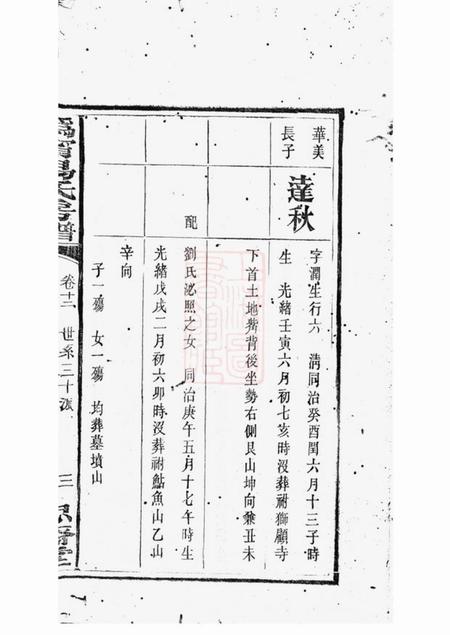 華美
長子
達秋
字潤生行六　清同治癸酉閏六月十三子時
生　光緒壬寅六月初七亥時沒葬祔獅顧寺
下首土地嘴背後坐勢右側艮山坤向兼丑未
配
劉氏泌照之女　同治庚午五月十七午時生
光緒戊戌二月初六卯時沒葬祔鮎魚山乙山
辛向
子一殤　女一殤　均葬墓墳山
氏房譜
卷十二　世系三十派
三